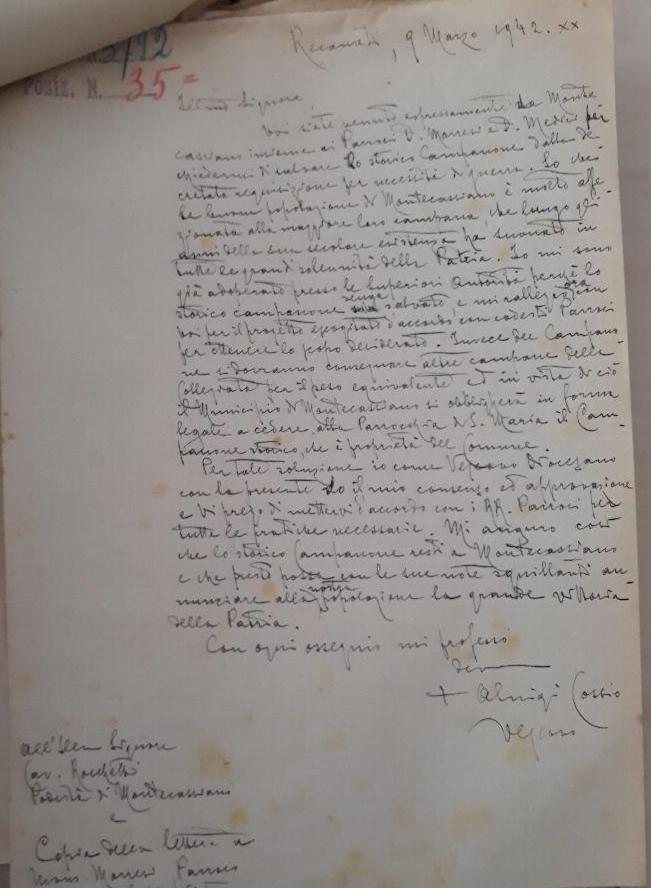 5/42
Posiz. N. 35=
Recanati, 9 Marzo 1942. XX
Ill.mo Signore,
Voi siete venuto espressamente da Monte
cassiano insieme ai Parroci D. Morresi e D. Medei per
chiedermi di salvare lo storico Campanone dalla de
cretata requisizione per necessità di guerra. So che
la buona popolazione di Montecassiano è molto affe
zionata alla maggiore loro campana, che lungo gli
anni della sua secolare esistenza ha suonato in
tutte le grandi solennità della Patria. Io mi sono
già adoperato presso le Superiori Autorità perchè lo
storico campanone venga salvato, e mi rallegro ora con
voi per il progetto escogitato d'accordo con codesti Parroci
per ottenere lo scopo desiderato. Invece del Campano-
ne si dovranno consegnare altre campane della
Collegiata per il peso equivalente ed in vista di ciò
il Municipio di Montecassiano si obbligherà in forma
legale a cedere alla Parrocchia di S. Maria il Cam-
panone storico, che è proprietà del Comune.
Per tale soluzione io come Vescovo Diocesano
con la presente do il mio consenso ed approvazione
e Vi prego di mettervi d'accordo con i RR. Parroci per
tutte le pratiche necessarie. Mi auguro così
che lo storico Campanone resti a Montecassiano
e che presto possa con le sue note squillanti an-
nunciare alla nostra popolazione la grande vittoria
della Patria.
Con ogni ossequio mi professo
dev
+ Aluigi Cossio
Vescovo
All'Ill.mo Signore
Cav. Rocchetti
Podestà di Montecassiano
e
Copia della lettera a
Mons. Morresi Parroco